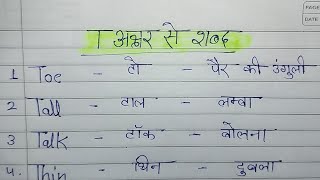 PAGE
DATE
T अक्षर से शब्द
1 Toe - टो - पैर की उंगुली
2 Tall - टाल - लम्बा
3 Talk - टॉक - बोलना
4. Thin - थिन - दुबला